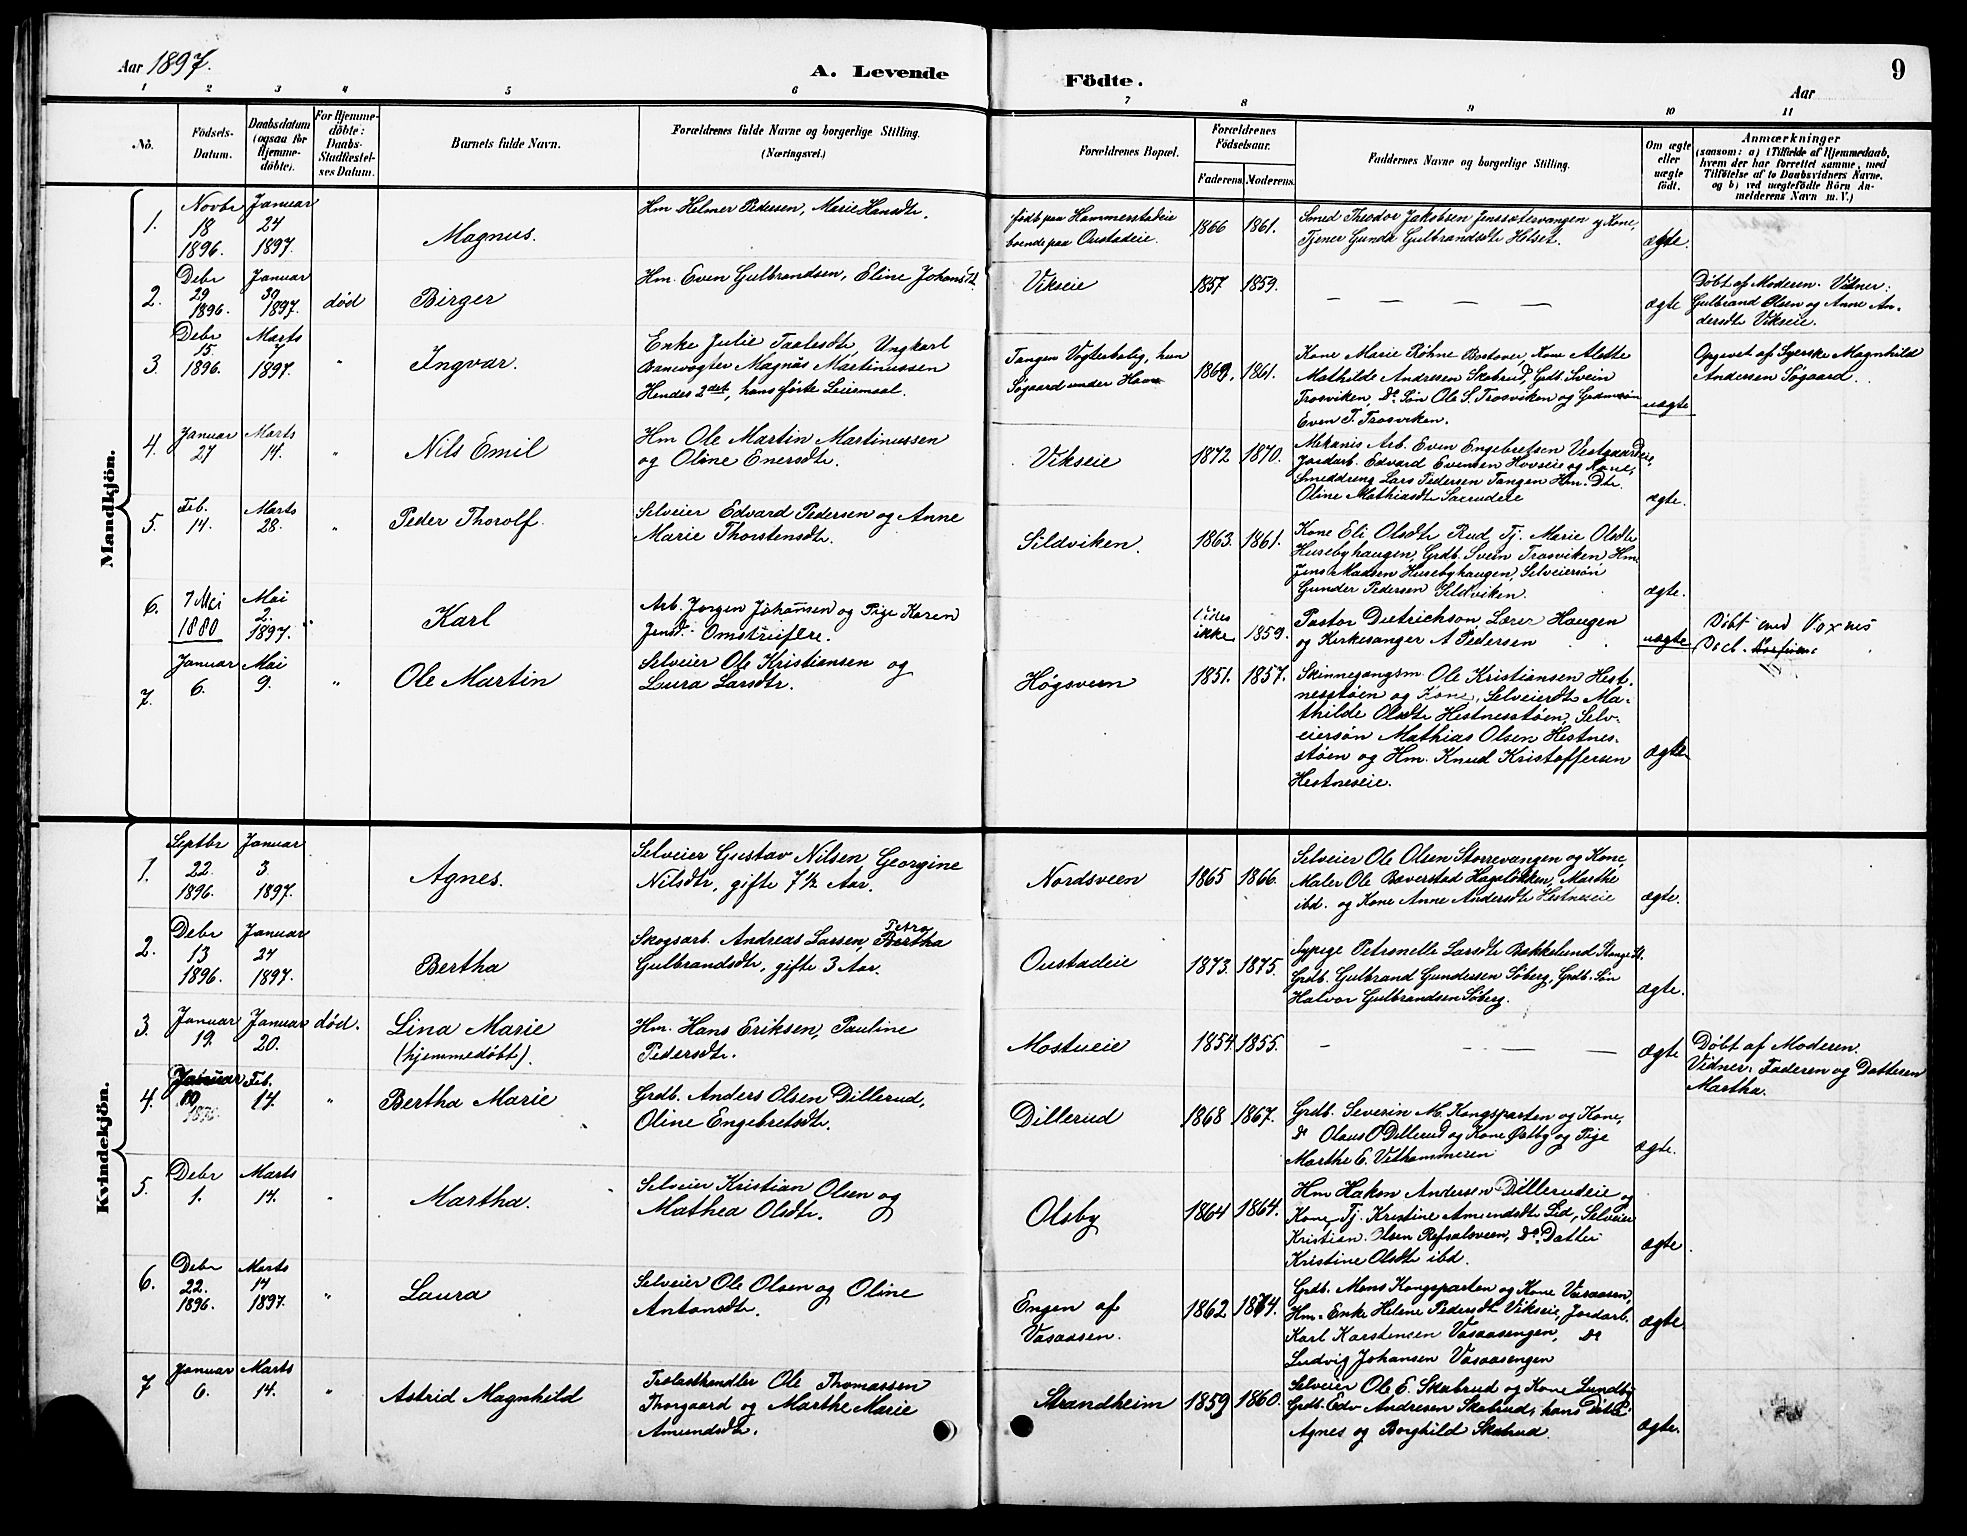 Aar 1897.
A. Levende Födte.
Aar
9
1 2 3 4 5 6 7 8 9 10 11
No.
Födsels-
Datum.
Daabsdatum
(ogsaa for
Hjemme-
döbte).
For Hjemme-
döbte:
Daabs-
Stadfæstel-
ses Datum.
Barnets fulde Navn.
Forældrenes fulde Navne og borgerlige Stilling.
(Næringsvei.)
Forældrenes Bopæl.
Forældrenes
Födselsaar.
Faderens. Moderens.
Faddernes Navne og borgerlige Stilling.
Om ægte
eller
uægte
født.
Anmærkninger
(saasom: a) i Tilfælde af Hjemmedaab,
hvem der har forrettet samme, med
Tilföielse af to Daabsvidners Navne.
og b) ved uægtefödte Börn An-
melderens Navn m. V.)
Mandkjön.
1.
Novbr
18
1896.
Januar
24
1897.
Magnus.
Hm Helmer Pedersen, Marie Hansdtr.
født paa Hammerstadeie
boende paa Oustadeie.
1866 1861.
Smed Theodor Jakobsen Jenssætervangen og Kone,
Tjener Gunda Gulbrandsdtr Helset.
ægte.
2.
Debr
29
1896.
Januar
30
1897.
død
Birger
Hm. Even Gulbrandsen, Eline Johansdtr
Vikseie
1857 1859.
— — — —
ægte
Døbt af Moderen. Vidner:
Gulbrand Olsen og Anne An-
dersdtr Vikseie.
3.
Debr
15.
1896.
Marts
7
1897.
"
Ingvar.
Enke Julie Taalesdtr, Ungkarl
Banevogter Magnus Martinussen
Hendes 2det, hans første Leiermaal.
Tangen Vogterbolig, hun
Søgaard under Horn
1869, 1861.
Kone Marie Røhne Bostover Kone Alette
Mathilde Andresen Skabrud, Grdb. Svein
Trosviken, Do Søn Ole S. Trosviken og Grdmsøn
Even T. Trosviken.
uægte
Opgivet af Syerske Magnhild
Andersen Søgaard.
4.
Januar
27
Marts
14.
"
Nils Emil
Hm Ole Martin Martinussen
og Oline Enersdtr.
Vikseie
1872 1870.
Mekanis Arb. Even Engebretsen Vestgaardeie,
Jordarb. Edvard Evensen Hovseie og Kone,
Smeddreng Lars Pedersen Tangen Hm. Dtr.
Oline Mathiasdtr Saxrudeie
ægte.
5.
Feb.
14.
Marts
28.
"
Peder Thorolf.
Selveier Edvard Pedersen og Anne
Marie Thorstensdtr.
Sildviken.
1863. 1861.
Kone Eli Olsdtr Rud, Tj. Marie Olsdtr
Husebyhaugen, Grdb. Svein Trosviken, Hm.
Jens Madsen Husebyhaugen, Selveiersøn
Gunder Pedersen Sildviken.
ægte.
6.
7 Mai
1880
Mai
2.
1897.
"
Karl
Arb. Jørgen Johansen og Pige Karen
Jensd. Omstreifere.
Vides
ikke 1859.
Pastor Dietrichson, Lærer Haugen
og Kirkesanger A Pedersen
uægte
Døbt med Voxnes
Daab.
7.
Januar
6.
Mai
9.
"
Ole Martin
Selveier Ole Kristiansen og
Laura Larsdtr.
Høgsveen
1851. 1857.
Skinnegangsm. Ole Kristiansen Hest-
nesstøen og Kone, Selveierdtr Ma-
thilde Olsdtr Hestnesstøen, Selv-
eiersøn Mathias Olsen Hestnes-
støen og Hm. Knud Kristoffersen
Hestneseie.
ægte
Kvindekjön.
1.
Septbr
22.
1896.
Januar
3.
1897.
Agnes.
Selveier Gustav Nilsen, Georgine
Nilsdtr, gifte 7½ Aar.
Nordsveen
1865 1866.
Selveier Ole Olsen Storrevangen og Kone,
Maler Ole Baverstad Hageløkken, Marthe
ibd. og Kone Anne Andersdtr Hestneseie
ægte.
2.
Debr
13
1896.
Januar
24
1897.
Bertha
Skogsarb. Andreas Larsen, Petra Bertha
Gulbrandsdtr, gifte 3 Aar.
Oustadeie
1873. 1875.
Sypige Petronelle Larsdtr Bakkelund Stange St.
Grdb. Gulbrand Gundersen Søberg, Grdb. Søn
Halvor Gulbrandsen Søberg.
ægte.
3.
Januar
19.
Januar
20.
død.
Lina Marie
(hjemmedøbt).
Hm. Hans Eriksen, Pauline
Pedersdtr.
Mostueie
1854 1855.
— — — —
ægte
Døbt af Moderen.
Vidner: Faderen og Datteren
Martha.
4.
Januar
Feb.
14.
"
Bertha Marie
Grdb. Anders Olsen Dillerud,
Oline Engebretsdtr.
Dillerud
1868 1867.
Grdb. Severin M. Kongsparten og Kone,
Do Olaus O Dillerud og Kone Østby og Pige
Marthe E. Vethammeren
ægte.
5.
Debr
1.
Marts
14.
"
Martha.
Selveier Kristian Olsen og
Mathea Olsdtr.
Olsby
1864 1864.
Hm Hakon Andersen Dillerudeie og
Kone, Tj. Kristine Amundsdtr Lid, Selveier
Kristian Olsen Refsalsveen, Do. Datter
Kristine Olsdtr ibd.
ægte
6.
Debr
22.
1896.
Marts
14
1897.
"
Laura
Selveier Ole Olsen og Oline
Antonsdtr.
Engen af
Vasaasen.
1862 1874.
Grdb. Mons Kongsparten og Kone Vasaasen,
Hm. Enke Helene Pedersdtr Vikseie, Jordarb.
Karl Karstensen Vasaasengen, Do
Ludvig Johansen Vasaasengen
ægte.
7
Januar
6.
Marts
14.
"
Astrid Magnhild
Trælasthandler Ole Thomassen
Thorgaard og Marthe Marie
Amundsdtr.
Strandheim
1859 1860.
Selveier Ole E. Skabrud og Kone Lundby
Grdb. Edv Andresen Skabrud, hans
Agnes og Borghild Skabrud.
ægte.